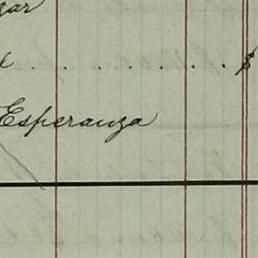 gar
. . . . . . . . $
Esperanza